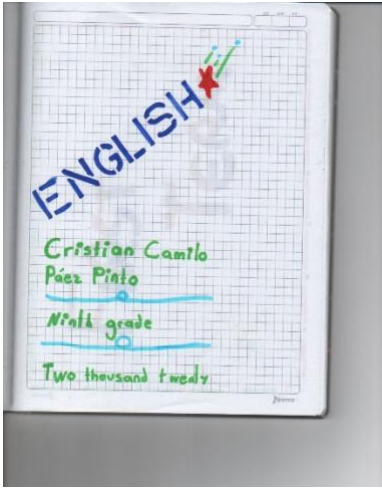 ENGLISH
Cristian Camilo
Páez Pinto
Ninth grade
Two thousand twenty